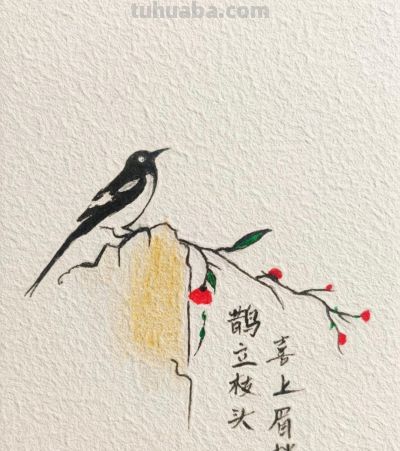 tuhuaba.com
鹊立枝头
喜上眉